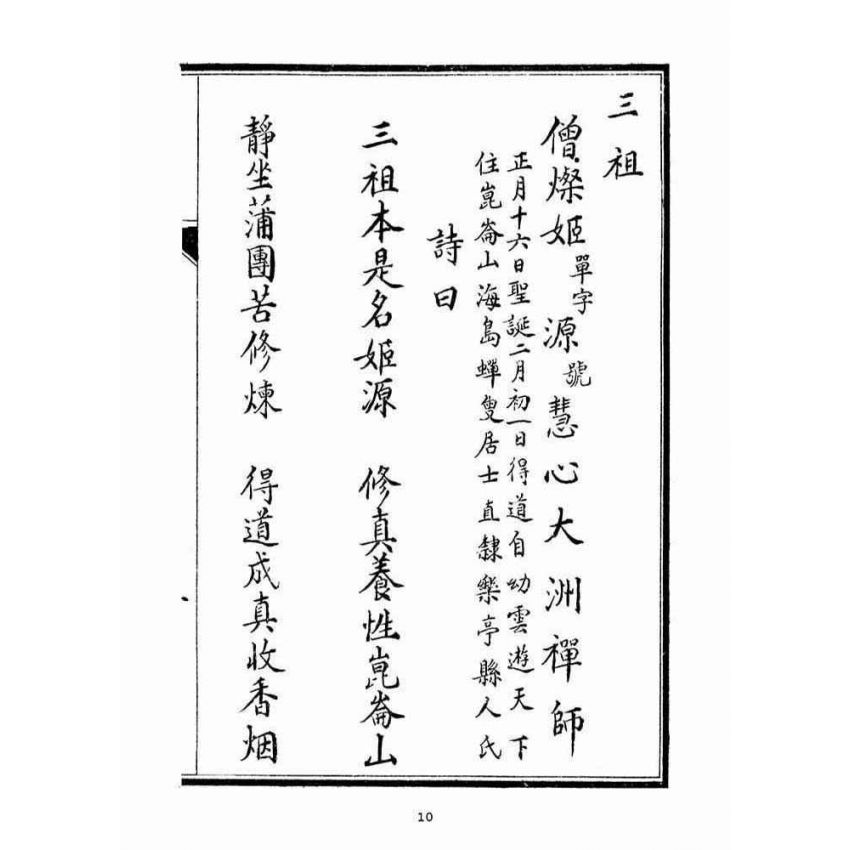 三祖
僧燦姬單字源號慧心大洲禪師
正月十六日聖誕二月初一日得道自幼雲遊天下
住崑崙山海島蟬叟居士直隸樂亭縣人氏
詩曰
三祖本是名姬源 修真養性崑崙山
靜坐蒲團苦修煉 得道成真收香烟
10